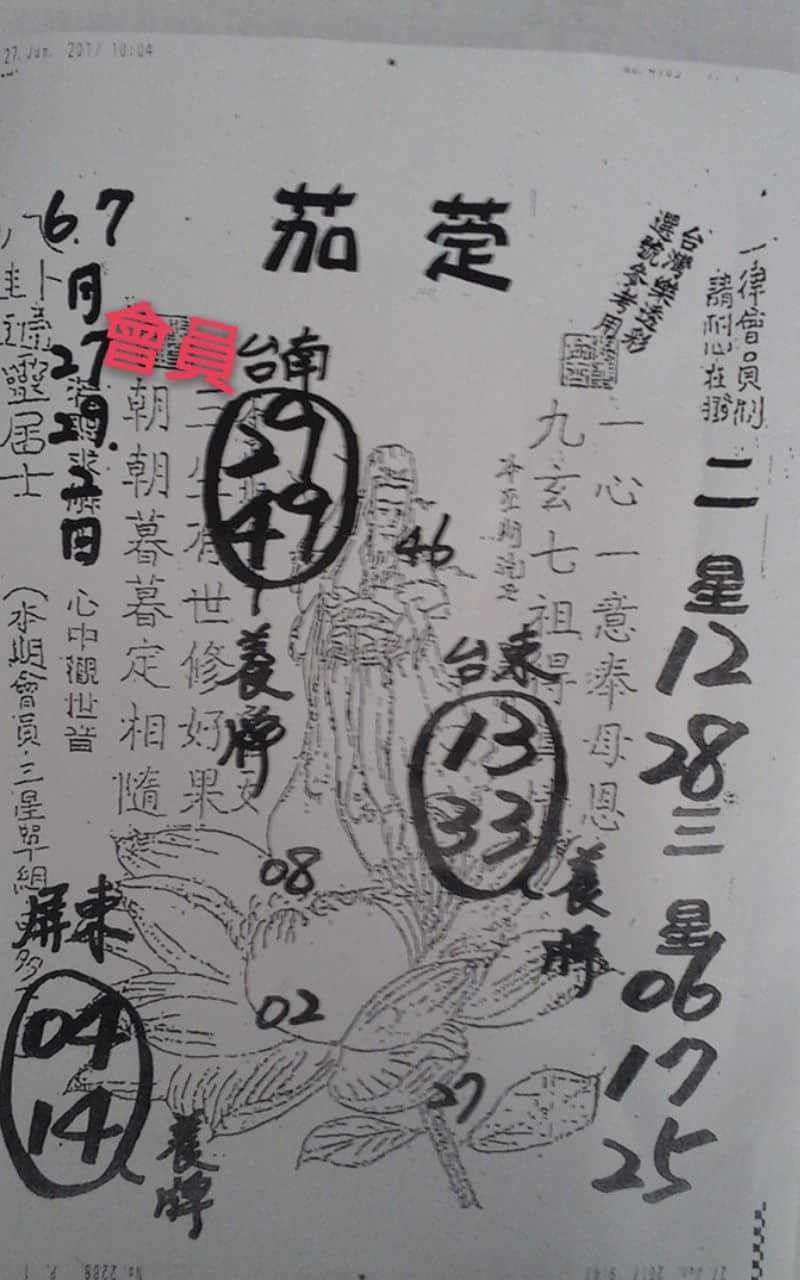 27.Jun. 2017 10:04
茄萣
台灣樂透彩
選號參考用
一律會員制
請耐心在撥
二星
12
28
三星
06
17
25
一心一意奉母恩
九玄七祖得
台東
13
33
養牌
46
台南
29
49
養牌
三生有世修好果
朝朝暮暮定相隨
會員
心中觀世音
6.7
月
27
29.
2
日
八卦
靈居士
(本期會員三星單組
屏東
04
14
養牌
08
02
27
No.2288 P. 1